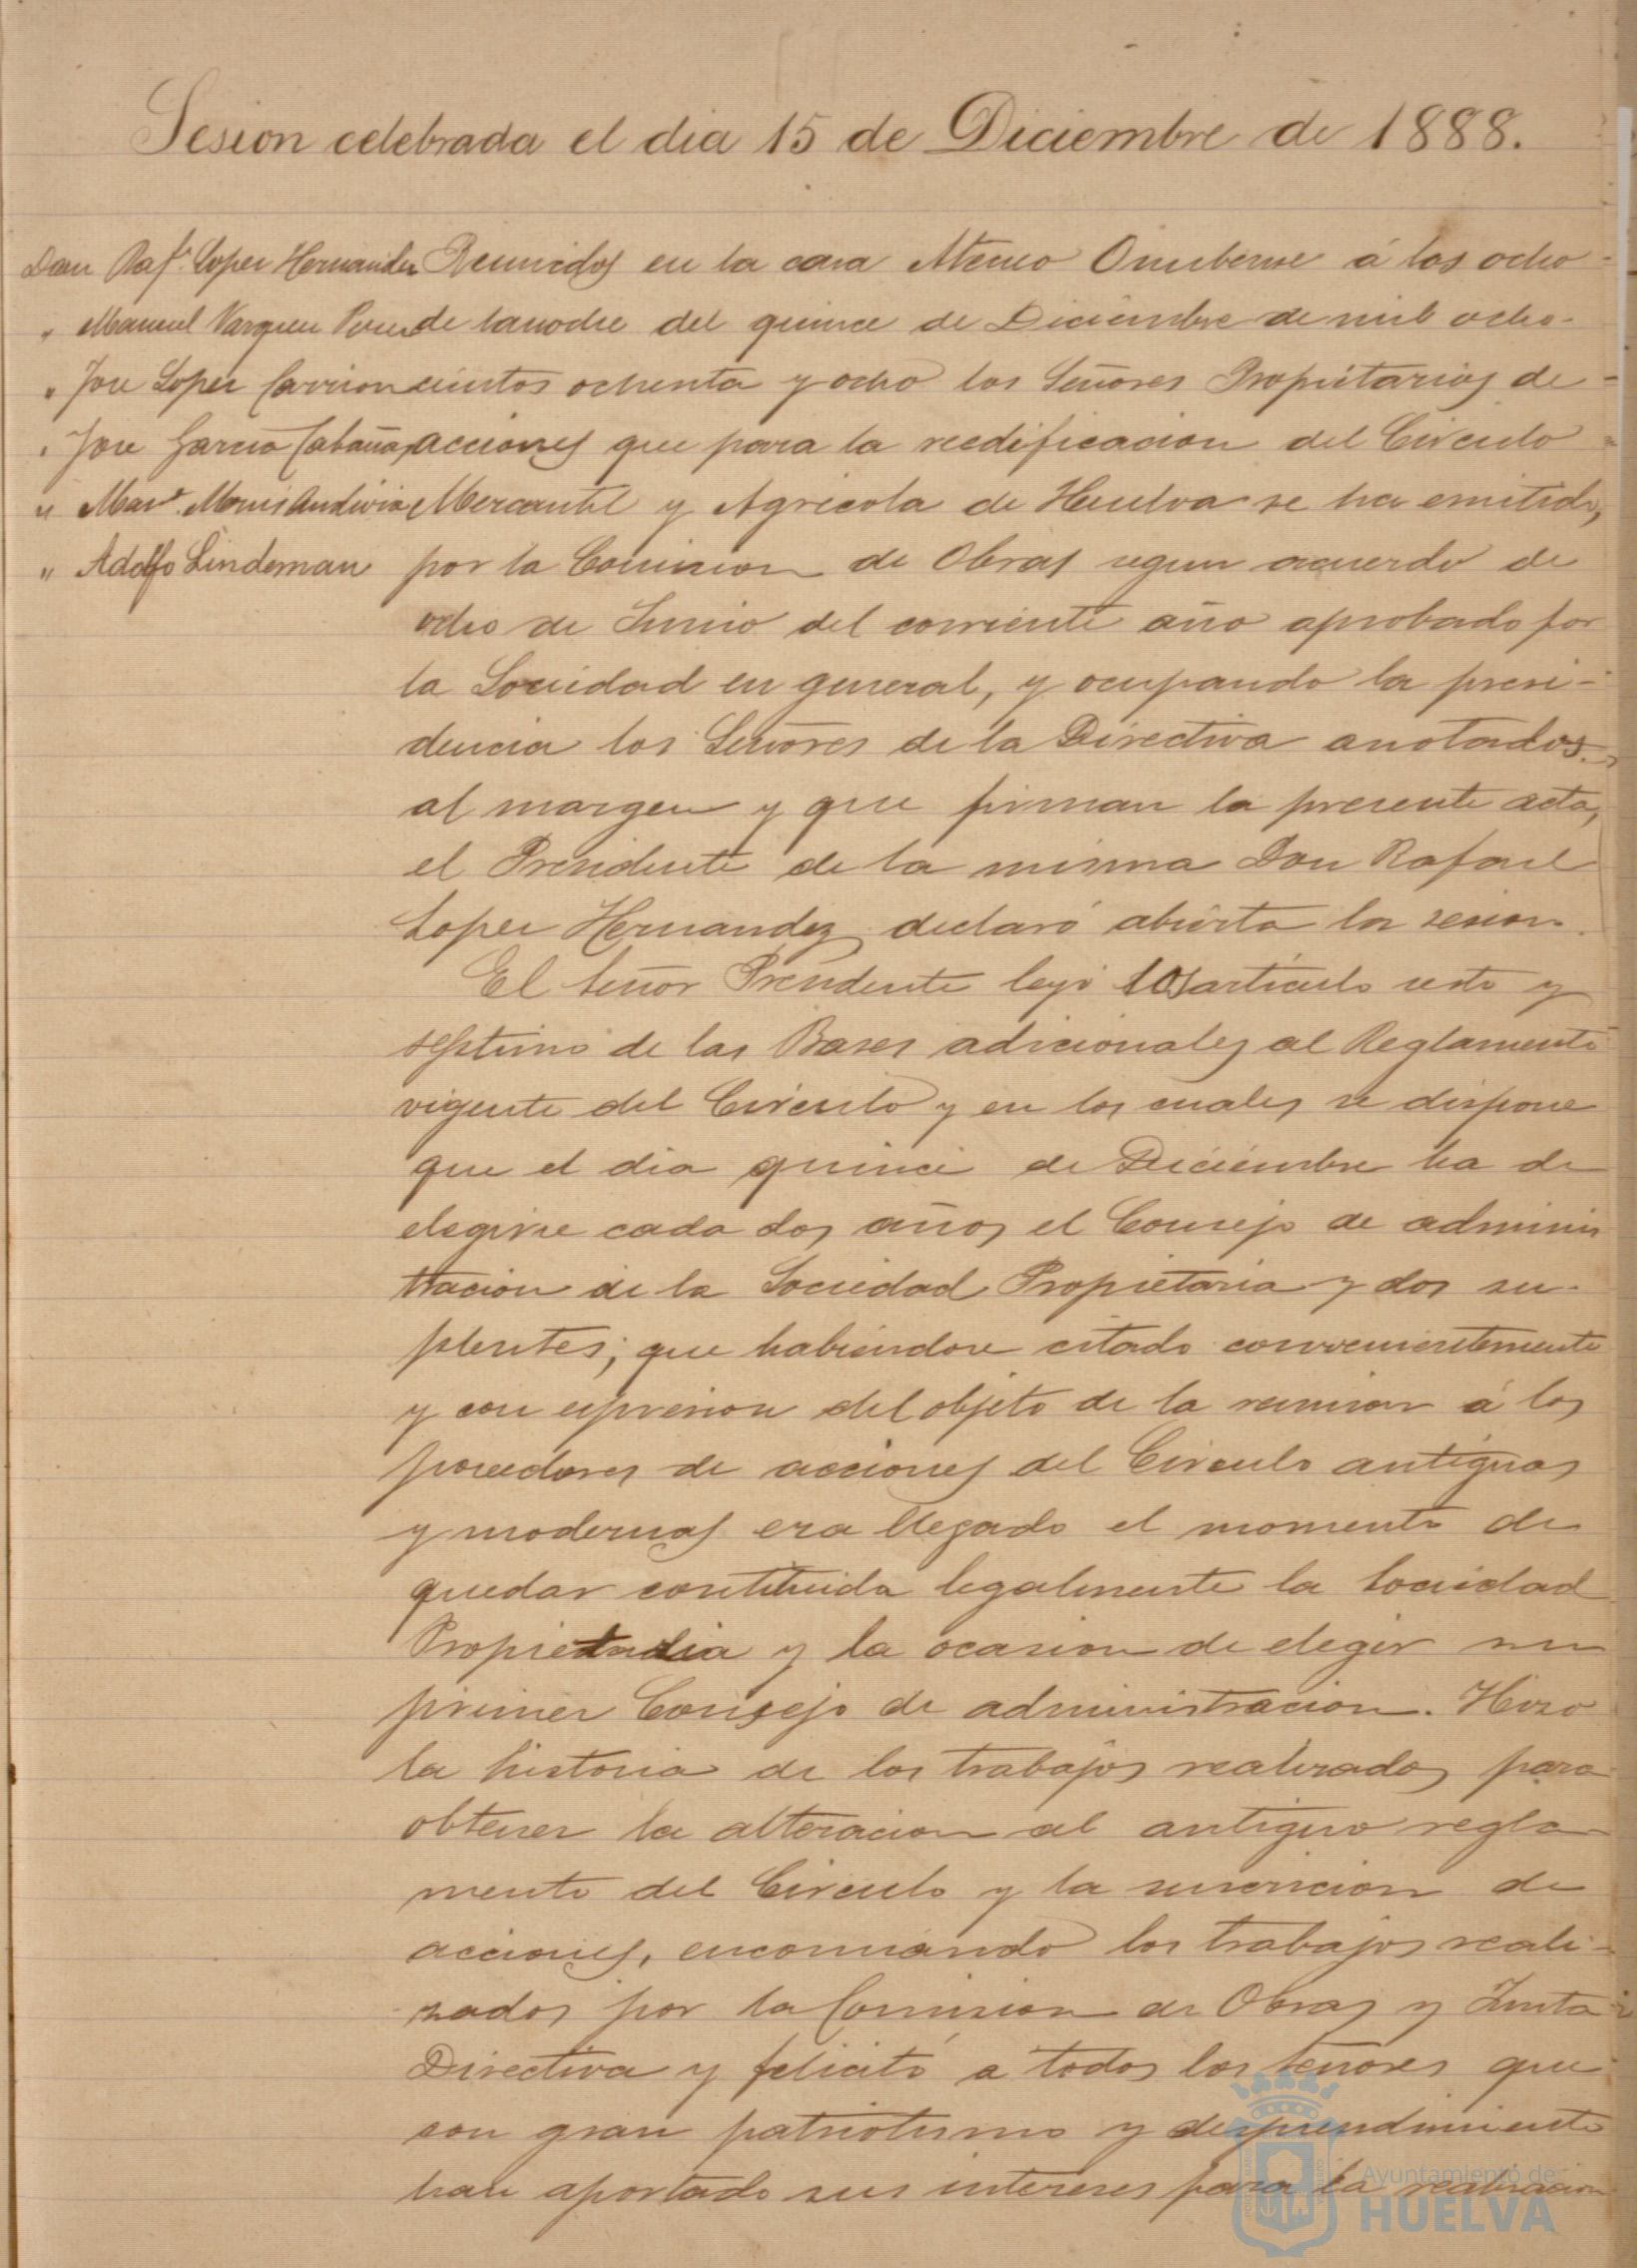 Sesion celebrada el dia 15 de Diciembre de 1888.
Don Raf.l Lopez Hernandez
" Manuel Vazquez Perez
" Jose Lopez Carrion
" Jose Garcia Cabañas
" Man.l Monis Andivia
" Adolfo Lindeman
Reunidos en la casa Ateneo Onubense á las ocho
de la noche del quince de Diciembre de mil ocho-
cientos ochenta y ocho los Señores Propietarios de
acciones que para la reedificacion del Circulo
Mercantil y Agricola de Huelva se ha emitido,
por la Comision de Obras segun acuerdo de
ocho de Junio del corriente año aprobado por
la Sociedad en general, y ocupando la presi-
dencia los Señores de la Directiva anotados
al margen y que firman la presente acta,
el Presidente de la misma Don Rafael
Lopez Hernandez declaró abierta la sesion.
El Señor Presidente leyó los articulo sesto y
septimo de las Bases adicionales al Reglamento
vigente del Circulo y en los cuales se dispone
que el dia quince de Diciembre ha de
elegirse cada dos años el Consejo de adminis
tracion de la Sociedad Propietaria y dos su-
plentes; que habiendose citado convenientemente
y con espresion del objeto de la reunion á los
poseedores de acciones del Circulo antiguas
y modernas era llegado el momento de
quedar constituida legalmente la Sociedad
Propietaria y la ocasion de elegir su
primer Consejo de administracion. Hizo
la historia de los trabajos realizados para
obtener la alteracion al antiguo regla
mento del Circulo y la suscricion de
acciones, encomiando los trabajos reali-
zados por la Comision de Obras y Junta
Directiva y felicitó a todos los señores que
con gran patriotismo y desprendimiento
han aportado sus intereses para la realizacion
Ayuntamiento de
HUELVA